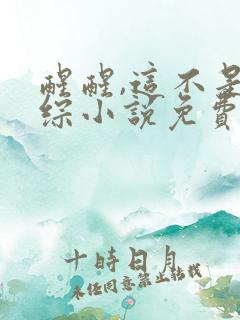 醒醒,這不是
综小說免費
十時日月
未经同意禁止转载